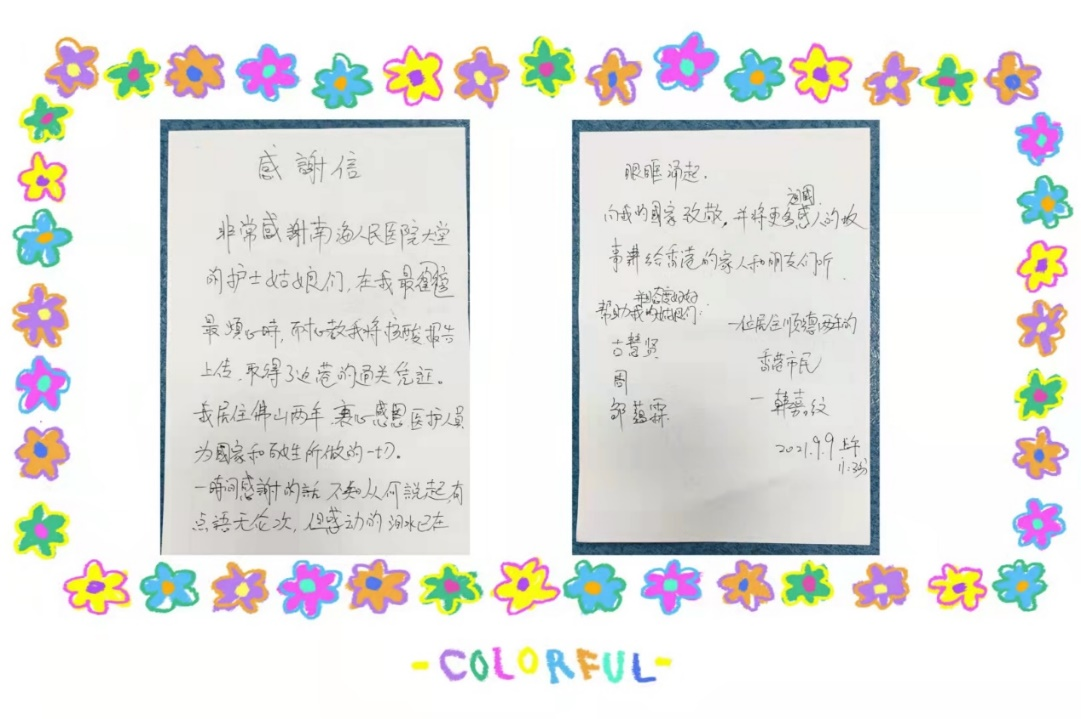 感謝信
非常感谢南海人民医院大堂
的护士姑娘们,在我最窘
最煩心時,耐心教我将核酸报告
上传,取得了返港的通关凭证。
我居住佛山两年 衷心感恩医护人员
为國家和百姓所做的一切。
一時间感謝的話 不知从何説起,有
点语无伦次,但感动的泪水已在
眼眶涌起.
祖國
向我的國家致敬,并将更多感人的故
事讲给香港的家人和朋友们听.
帮助我的姑娘们:
一位居住顺德两年的
古慧贤
香港市民
周
邹蕴霖
一韓嘉纹
2021.9.9 上午
-COLORFUL-